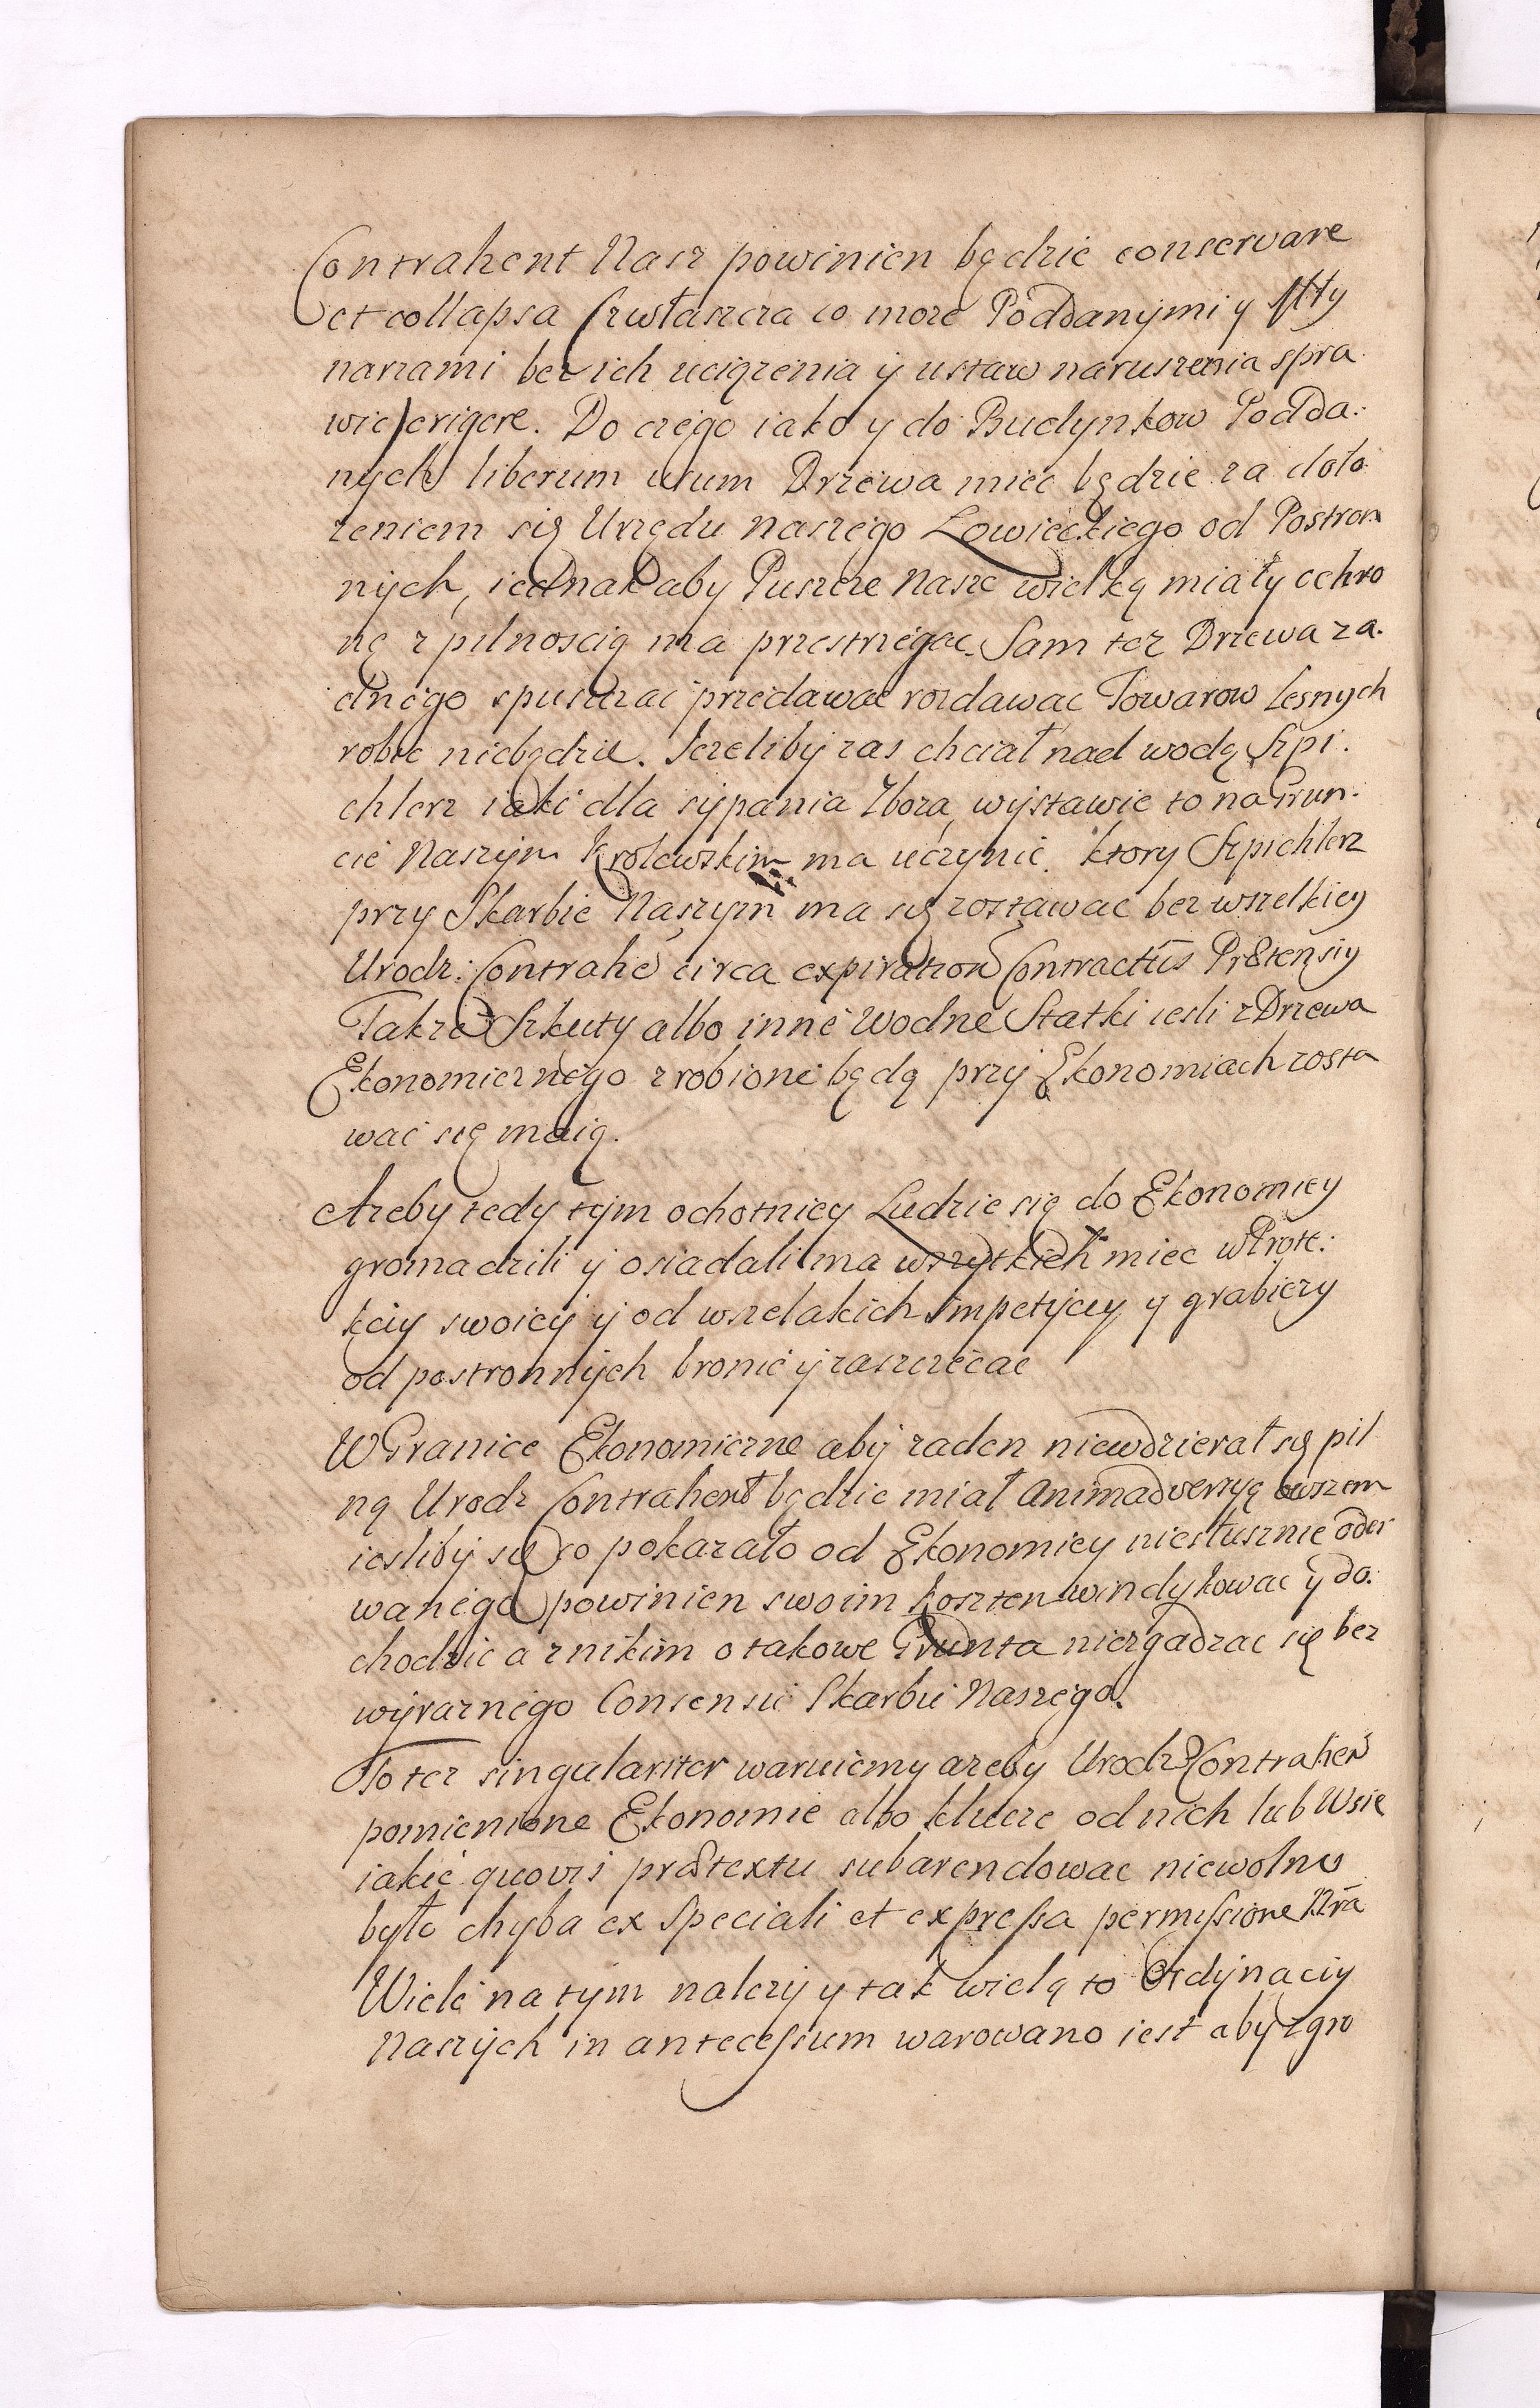 Contrahent Nasz powinien będzie conservare
et collapsa (zwłaszcza co może Poddanymi y Mły
narzami bez ich uciążenia y ustaw naruszenia spra
wić) erigere. Do czego iako y do Budynkow Podda-
nych liberum usum Drzewa mieć będzie za doło
żeniem się Urzędu naszego Łowieckiego od Postron
nych, iednak aby Puszcze Nasze wielką miały ochro
nę z pilnoscią ma przestrzegac. Sam też Drzewa ża-
dnego spuszczać przedawać rozdawac Towarow Lesnych
robić niebędzie. Jeżeliby zas chciał nad wodą Szpi-
chlerz iaki dla sypania Zboża, wystawić to na Grun-
cie Naszym Krolewskim ma uczynić. ktory Szpichlerz
przy Skarbie Naszym ma się zostawać bez wszelkiey
Urodz: Contrahē circa expiration Contractūs Prætensiy
Takze Szkuty albo inne Wodne Statki iesli z Drzewa
Ekonomicznego zrobione będą przy Ekonomiach zosta
wać się maią.
Ażeby tedy tym ochotniey Ludzie się do Ekonomiey
gromadzili y osiadali ma wszytkich miec w Prote:
kciy swoiey y od wszelakich Impetycyy y grabieży
od postronnych bronić y zaszczécac
W Granice Ekonomiczne aby żaden niewdzierał się pil
ną Urodz Contrahent będzie miał animadversyą owszem
iesliby się co pokazało od Ekonomiey niesłusznie oder
wanego powinien swoim kosztem windykować y do-
chodzić a z nikim o takowe Grunta niezgadzac się bez
wyraznego Consensu Skarbu Naszego.
To też singulariter waruiemy ażeby Urodz Contraheñ
pomienione Ekonomie albo klucze od nich lub Wsie
iakie quovis prætextu subarendować niewolno
było chyba ex speciali et expressa permissione Nrã
Wiele na tym należy y tak wielą to Ordynaciy
Naszych in antecessum warowano iest aby zgro